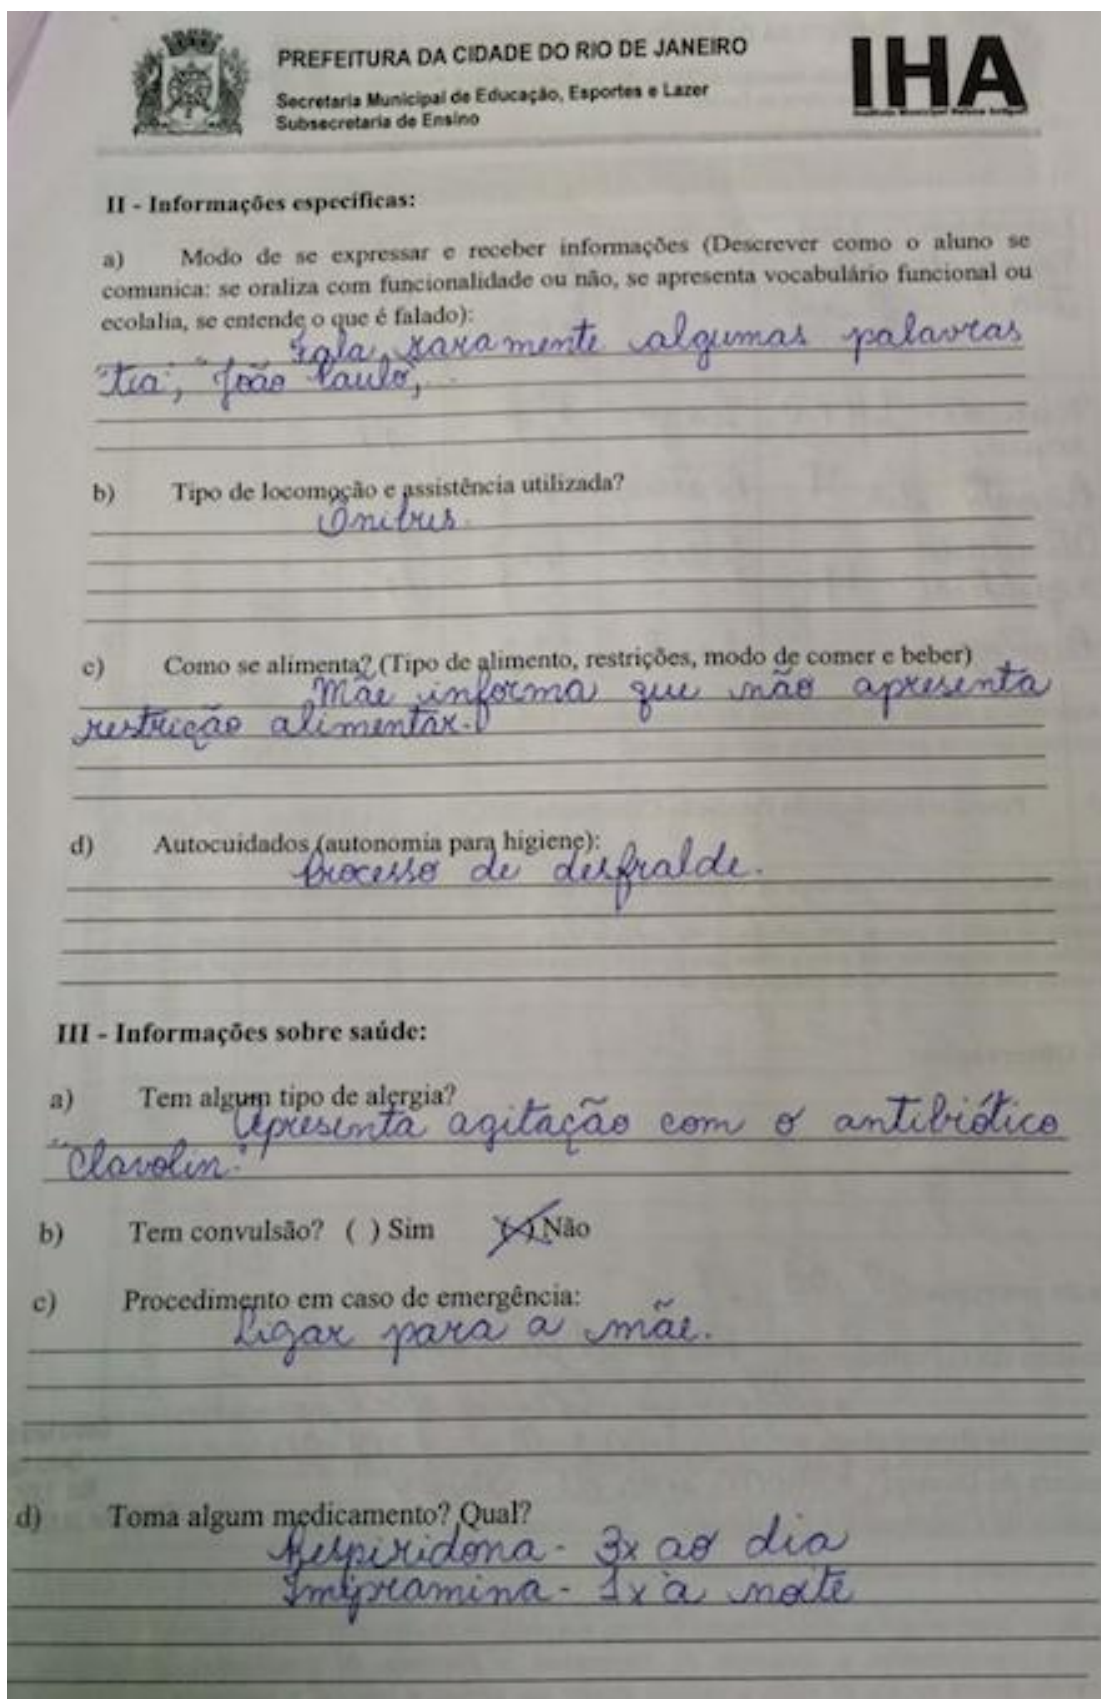 PREFEITURA DA CIDADE DO RIO DE JANEIRO
IHA
Secretaria Municipal de Educação, Esportes e Lazer
Subsecretaria de Ensino
II - Informações específicas:
a) Modo de se expressar e receber informações (Descrever como o aluno se
comunica: se oraliza com funcionalidade ou não, se apresenta vocabulário funcional ou
ecolalia, se entende o que é falado):
Fala raramente algumas palavras
"tia", "João Paulo",
b) Tipo de locomoção e assistência utilizada?
Ônibus.
c) Como se alimenta? (Tipo de alimento, restrições, modo de comer e beber)
Mãe informa que não apresenta
restrição alimentar.
d) Autocuidados (autonomia para higiene):
Processo de desfralde.
III - Informações sobre saúde:
a) Tem algum tipo de alergia?
Apresenta agitação com o antibiótico
"Clavolin".
b) Tem convulsão? ( ) Sim (X) Não
c) Procedimento em caso de emergência:
Ligar para a mãe.
d) Toma algum medicamento? Qual?
Respiridona - 3x ao dia
Imipramina - 1x à noite